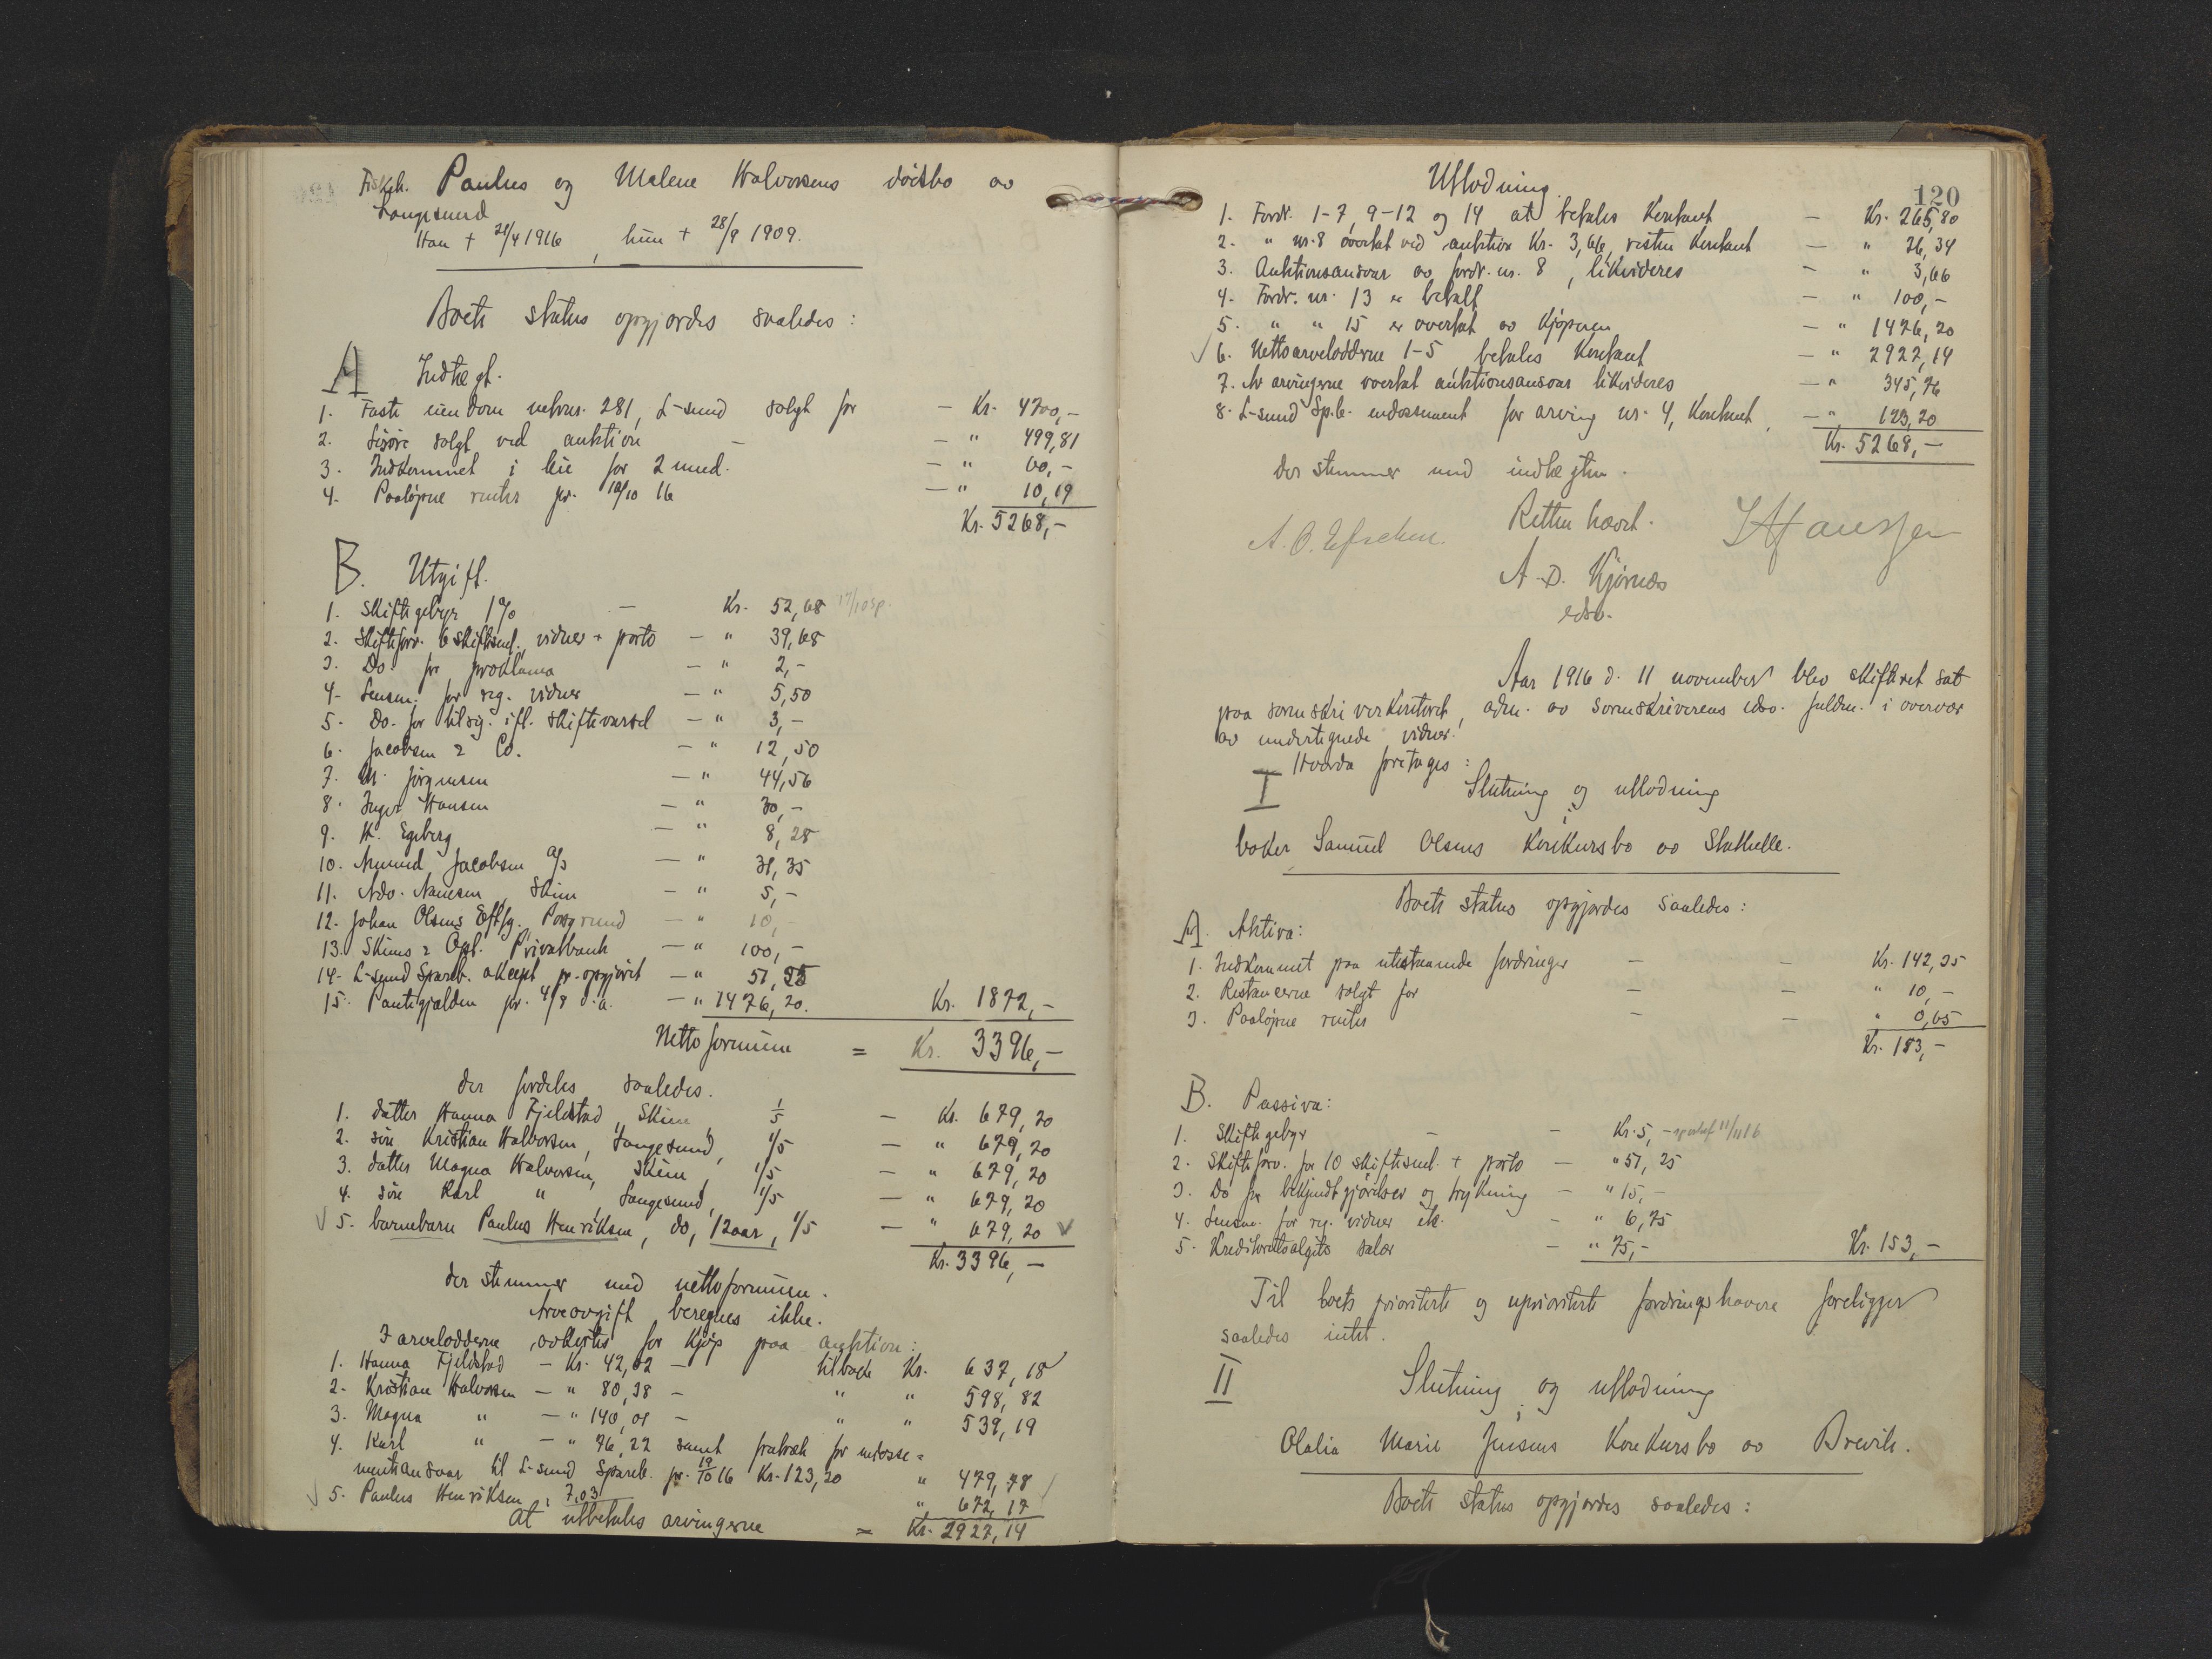 Fiskeh. Paulus og Malene Halvorsens dødsbo av
Langesund
Han + 21/4 1916, hun + 28/9 1909.
Boets status opgjordes saaledes:
A Indtægt.
1. Faste eiendom matrnr. 281, L-sund solgt for — Kr. 4700,-
2. Løsøre solgt ved auktion — — " 499,81
3. Indkommet i leie for 2 mnd. — " 60,-
4. Paaløpne renter pr. 18/10 16 — " 10,19
Kr. 5268,-
B. Utgift.
1. Skiftegebyr 1% — Kr. 52,68 17/10 sp.
2. Skifteforv. 6 skiftesml., vidner + porto — " 39,68
3. Do. for proklama — " 2,-
4. Lensm. for reg. vidner — " 5,50
5. Do. for tilsig. ifl. skiftevarsel — " 3,-
6. Jacobsen & Co. — " 12,50
7. M. Jørgensen — " 44,56
8. Inger Hansen — " 30,-
9. H. Egeberg — " 8,28
10. Amund Jacobsen A/S — " 31,35
11. Ado. Nansen, Skien — " 5,-
12. Johan Olsens Eftflg. Porsgrund — " 10,
13. Skiens & Opl. Privatbank — " 100,-
14. L-sund Spareb. aksept pr. opgjøret — " 51,25
15. Pantegjælden pr. 4/8 d.a. — " 1476,20. Kr. 1872,-
Netto formuen = Kr. 3396,-
der fordeles saaledes.
1. datter Hanna Fjeldstad, Skien, 1/5 — Kr. 679,20
2. søn Kristian Halvorsen, Langesund, 1/5 — " 679,20
3. datter Magna Halvorsen, Skien, 1/5 — " 679,20
4. søn Karl " , Langesund, 1/5 — " 679,20
√ 5. barnebarn Paulus Henriksen, do, 12 aar, 1/5 — " 679,20 √
Kr. 3396,-
der stemmer med nettoformuen.
Arveavgift beregnes ikke.
I arvelodderne avkortes for kjøp paa auktion:
1. Hanna Fjeldstad — Kr. 42,02 — tilbake Kr. 637,18
2. Kristian Halvorsen — " 80,38 — " " 598,82
3. Magna " — " 140,01 — " " 539,19
4. Karl " — " 76,22 samt fratræk for endosse=
mentansvar til L-sund Spareb. pr. 19/10 16 Kr. 123,20 " 479,78
√ 5. Paulus Henriksen, 7,03 " 672,17
At utbetales arvingerne = Kr. 2927,14
120
Utlodning.
1. Fordr. 1-7, 9-12 og 14 at betales kontant — Kr. 265,80
2. " nr. 8 overtat ved auktion Kr. 3,66, resten kontant — " 26,34
3. Auktionsansvar av fordr. nr. 8, likvideres — " 3,66
4. Fordr. nr. 13 er betalt — " 100,-
5. " " 15 er overtat av kjøperen — " 1476,20
√ 6. Nettoarvelodderne 1-5 betales kontant — " 2927,14
7. Av arvingerne overtat auktionsansvar likvideres — " 345,76
8. L-sund Sp.b. endossement for arving nr. 4, kontant, — " 123,20
Kr. 5268,-
der stemmer med indtægten.
Retten hævet.
A. D. Kjørnæs
edsv.
Aar 1916 d. 11 november blev skifteret sat
paa sorenskriverkontoret, adm. av sorenskriverens edsv. fuldm. i overvær
av undertegnede vidner.
Hvorda foretages:
I Slutning og utlodning
i
baker Samuel Olsens konkursbo av Stathelle.
Boets status opgjordes saaledes:
A. Aktiva:
1. Indkommet paa utestaaende fordringer — — Kr. 142,35
2. Restancerne solgt for — — " 10,-
3. Paaløpne renter — — " 0,65
Kr. 153,-
B. Passiva:
1. Skiftegebyr — — Kr. 5,- 11/11 16
2. Skifteforv. for 10 skiftesml. + porto — " 51,25
3. Do for bekjendtgjørelser og trykning — " 15,-
4. Lensm. for reg. vidner etc. — " 6,75
5. Kreditorutvalgets salær — " 75,- Kr. 153,-
Til boets prioriterte og uprioriterte fordringshavere foreligger
saaledes intet.
II Slutning og utlodning
i
Olalia Marie Jensens konkursbo av Brevik.
Boets status opgjordes saaledes: